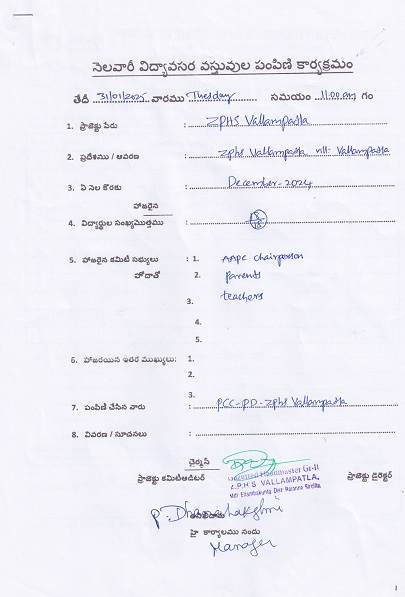 నెలవారీ విద్యావసర వస్తువుల పంపిణి కార్యక్రమం
తేదీ 31/01/2025 వారము Tuesday సమయం 11.00 am గం
1. ప్రాజెక్టు పేరు : ZPHS Vallampatla
2. ప్రదేశము / ఆవరణ : Zphs Vallampatla vill- Vallampatla
3. ఏ నెల కొరకు : December-2024
హాజరైన
4. విద్యార్థుల సంఖ్యమొత్తము : 18/18
5. హాజరైన కమిటీ సభ్యులు : 1. AAPC chairperson
హోదాతో 2. parents
3. teachers
4.
5.
6. హాజరయిన ఇతర ముఖ్యులు: 1.
2.
3.
7. పంపిణీ చేసిన వారు : PCC-PD-ZPHS Vallampatla
8. వివరణ / సూచనలు :
ఛైర్మన్
Gazetted Headmaster Gr-II
Z.P.H S VALLAMPATLA,
Mdl Ellanthakunta Dist: Rajanna Sircilla
ప్రాజెక్టు కమిటీఆడిటర్ ప్రాజెక్టు డైరెక్టర్
P. Dhanalakshmi
హై కార్యాలము నందు
Manager